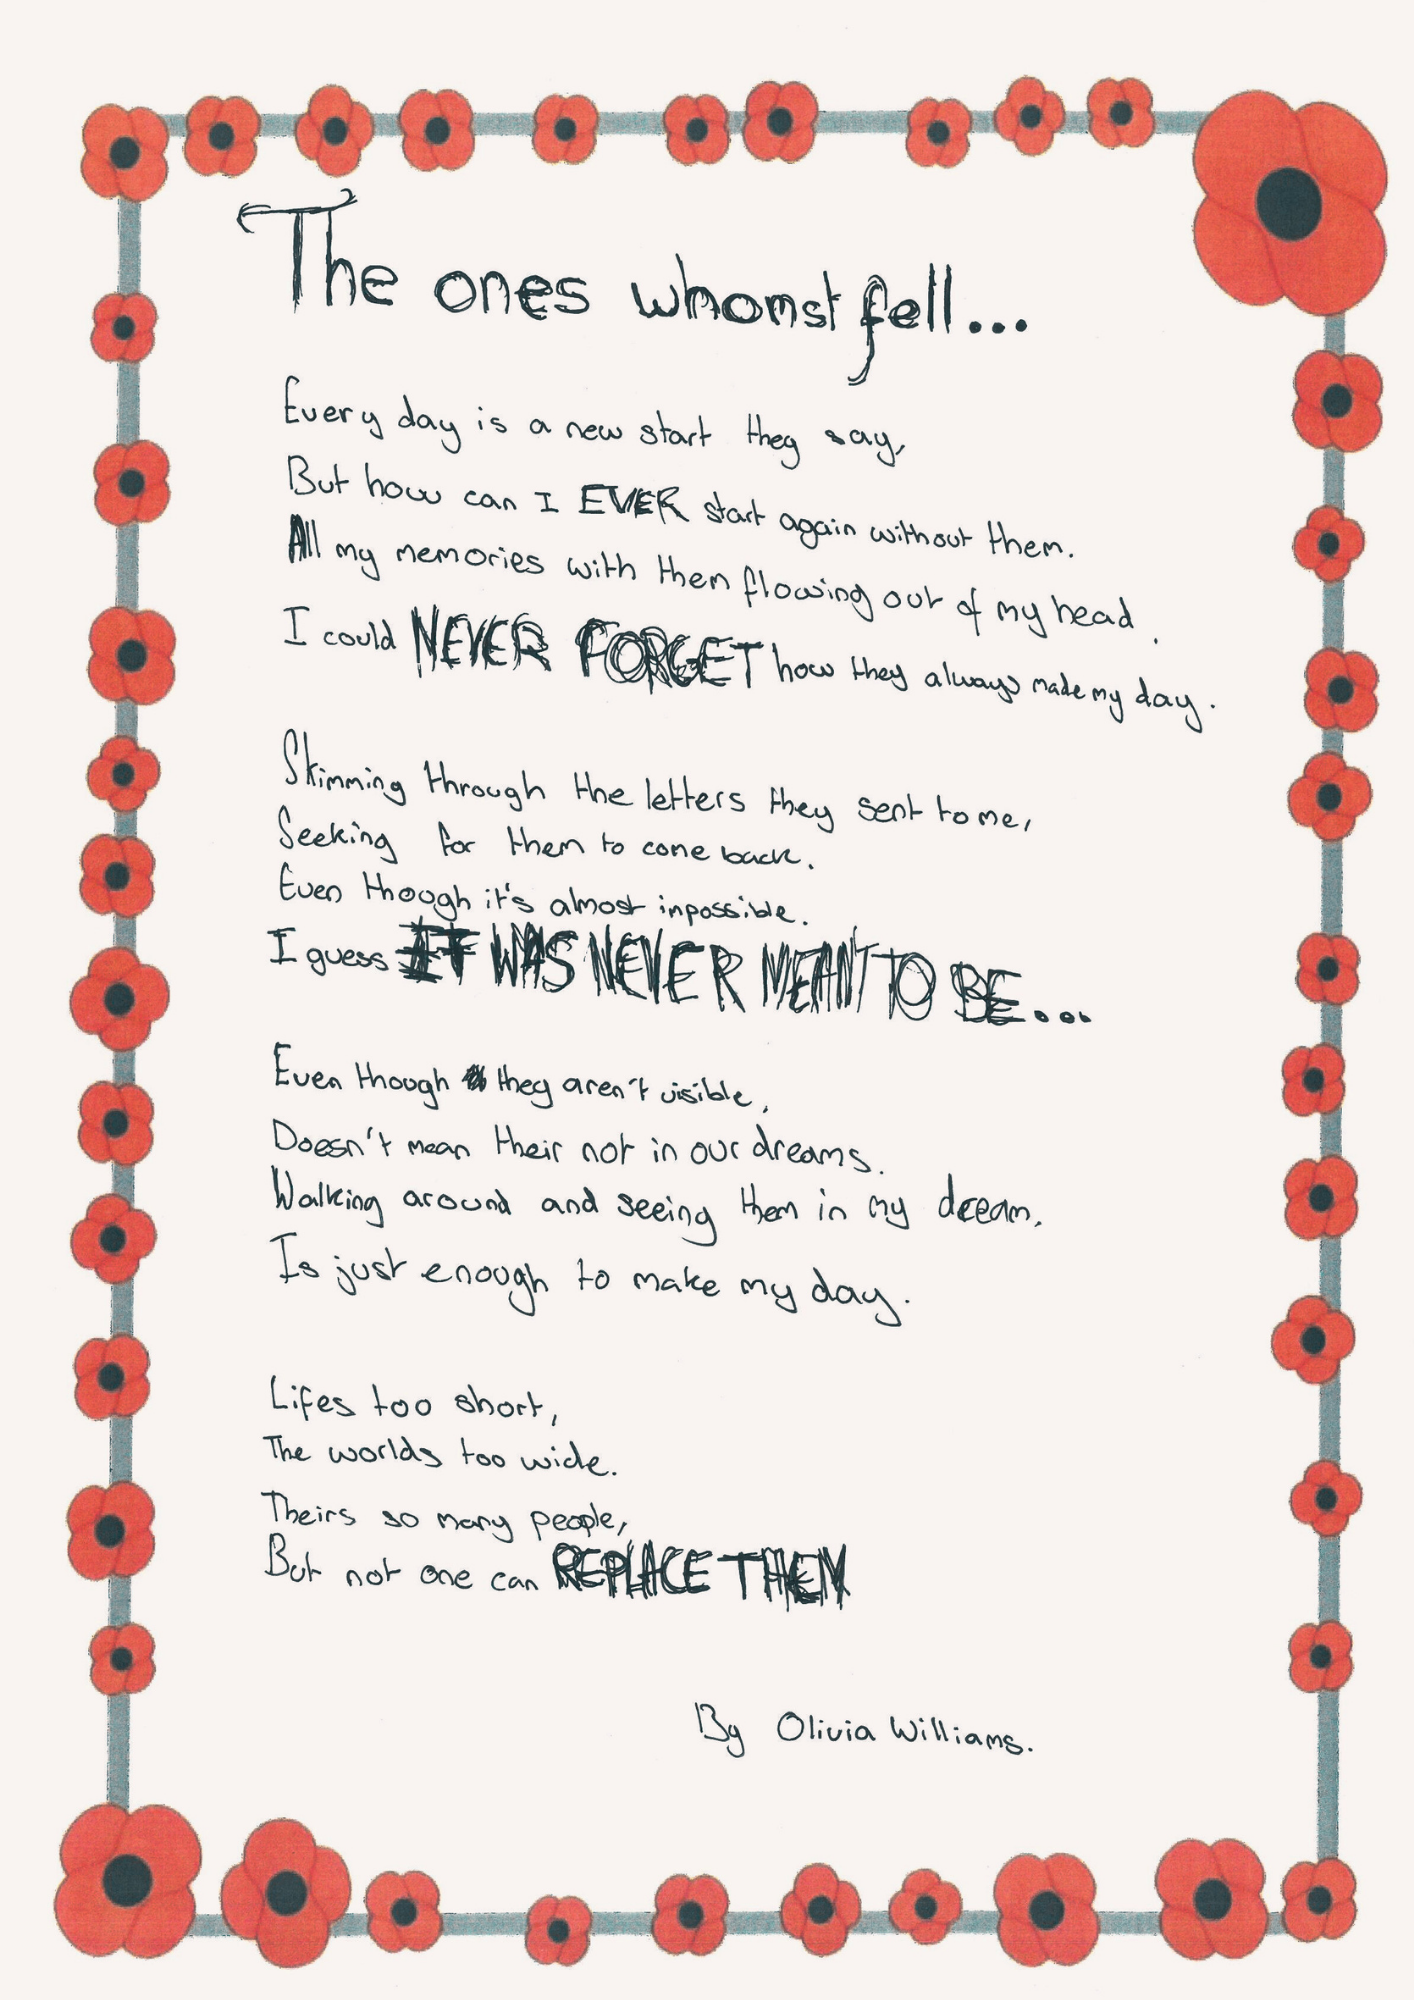 The ones whomst fell...
Every day is a new start they say,
But how can I EVER start again without them.
All my memories with them flowing out of my head.
I could NEVER FORGET how they always made my day.
Skimming through the letters they sent to me,
Seeking for them to come back.
Even though it's almost inpossible.
I guess IT WAS NEVER MEANT TO BE...
Even though they aren't visible,
Doesn't mean their not in our dreams.
Walking around and seeing them in my dream,
Is just enough to make my day.
Lifes too short,
The worlds too wide.
Theirs so many people,
But not one can REPLACE THEM
By Olivia Williams.